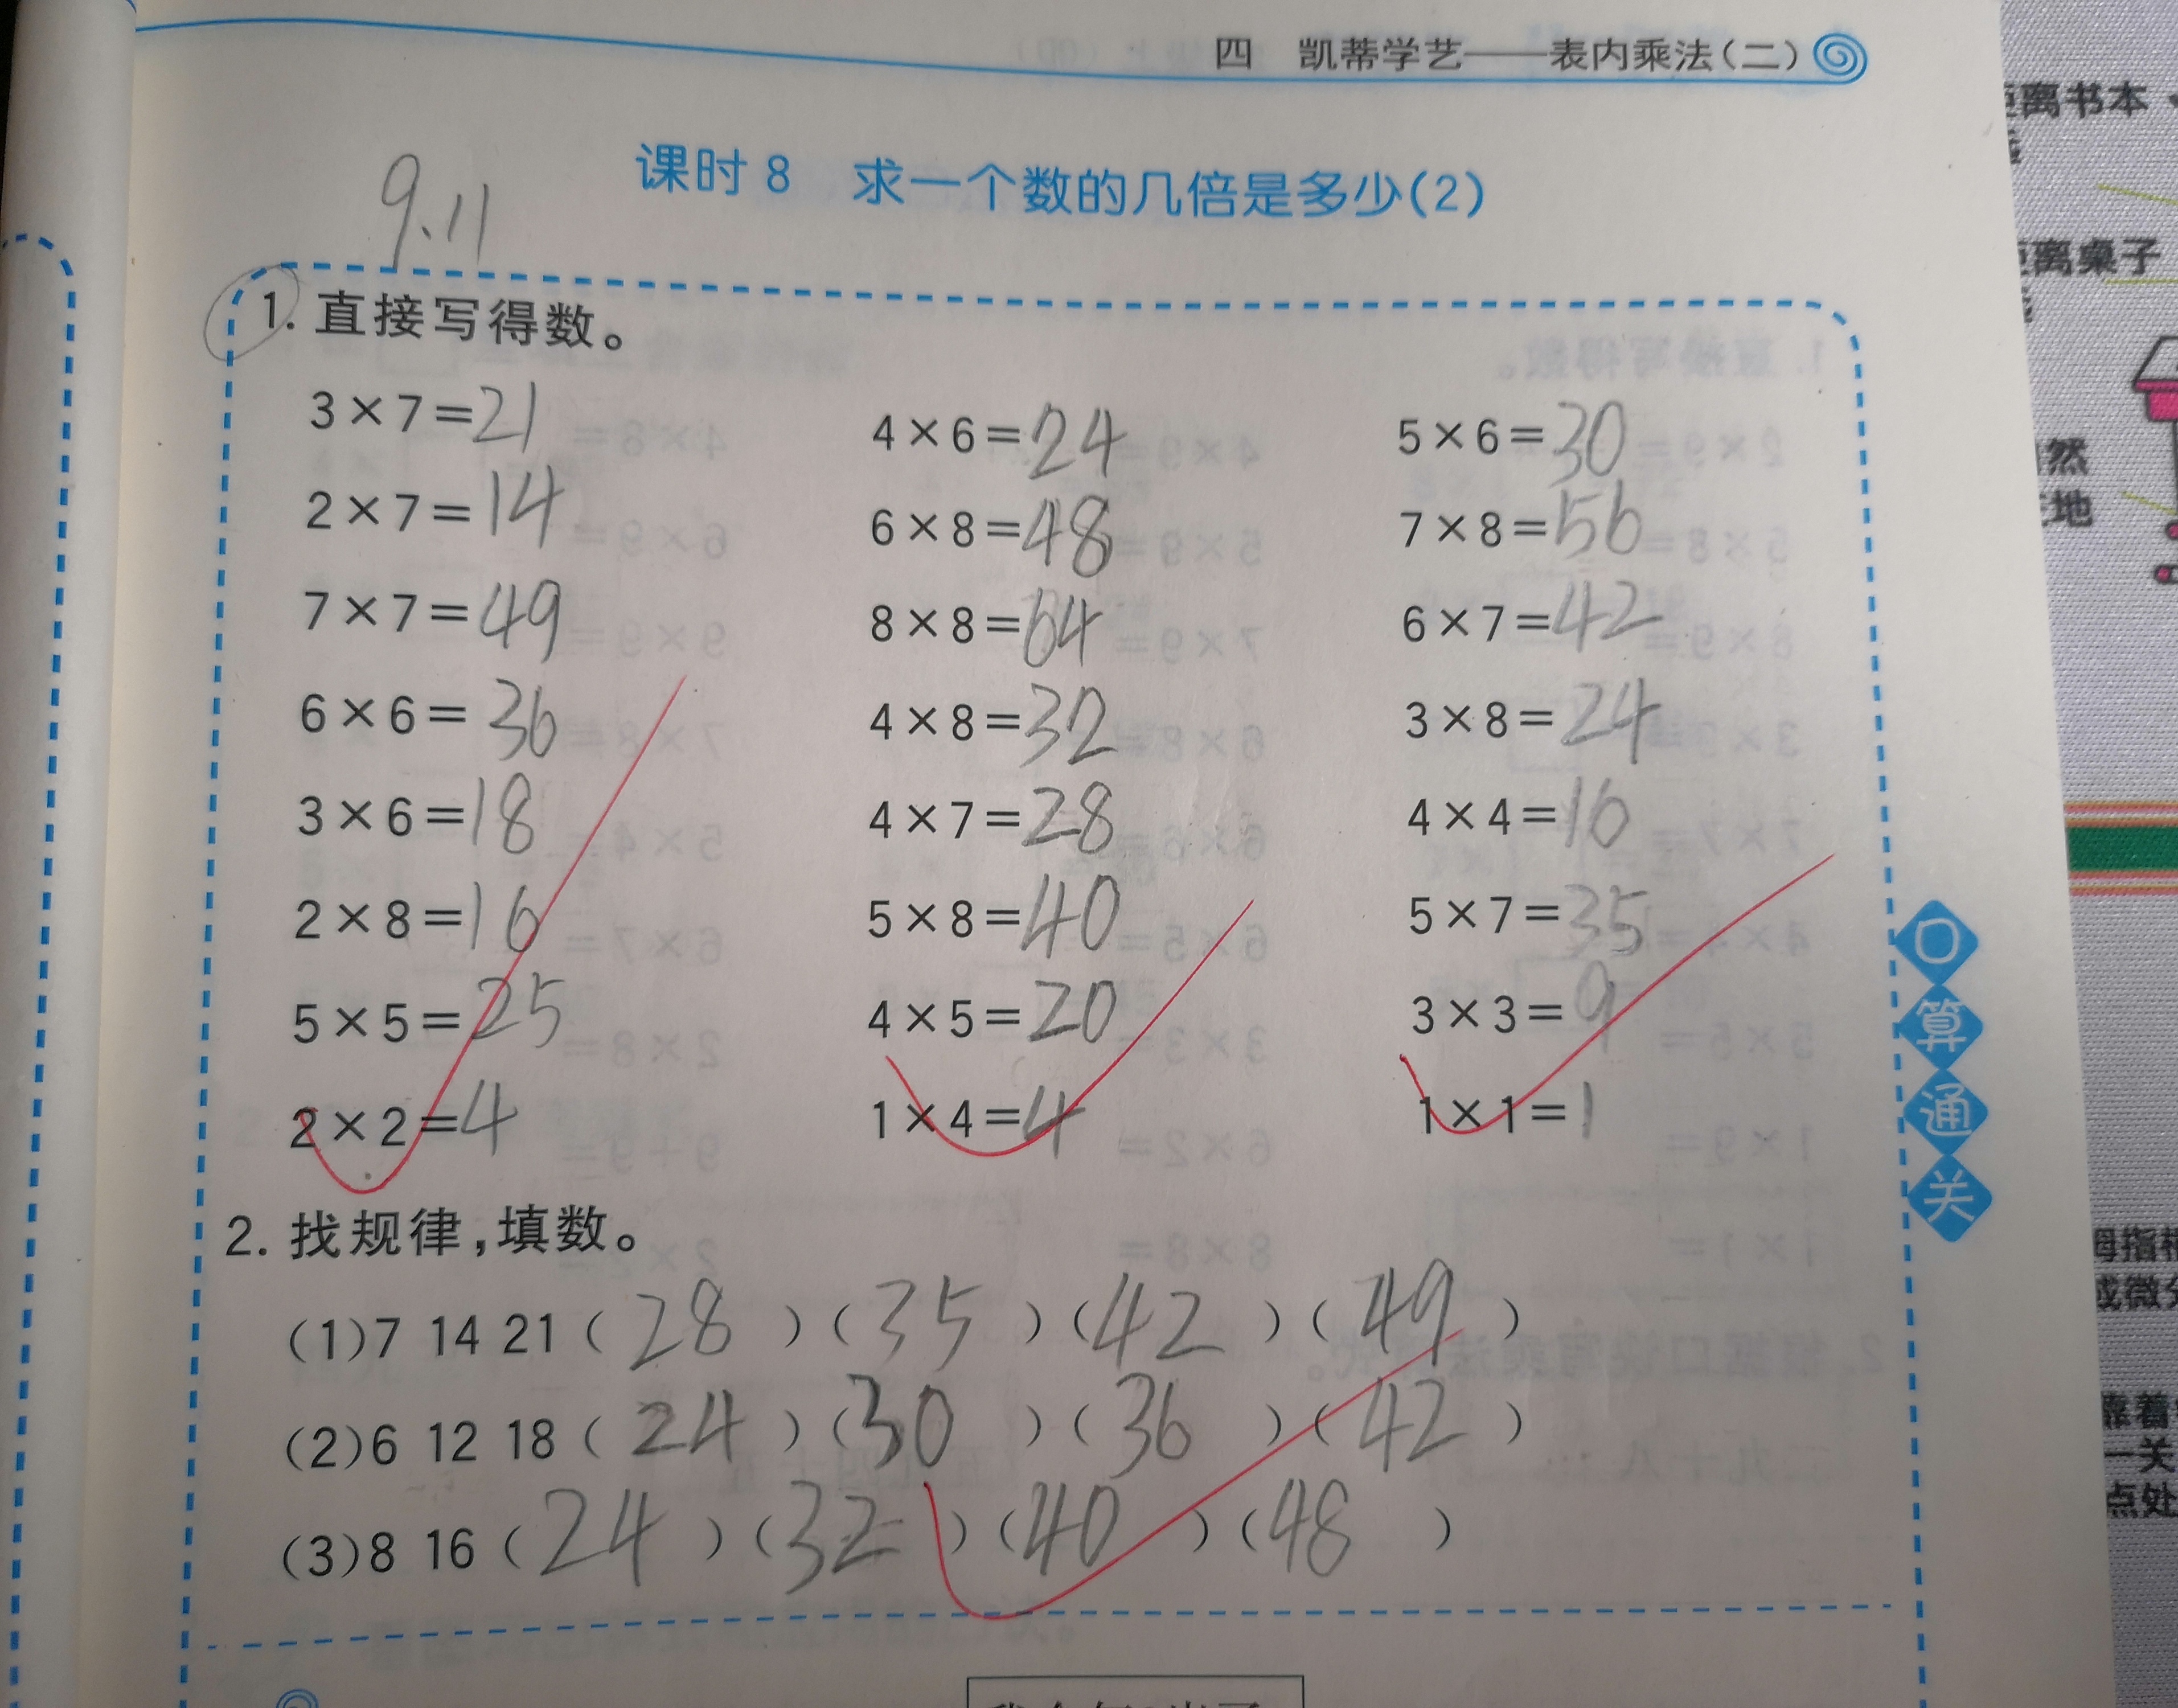 四 凯蒂学艺——表内乘法(二)
课时8 求一个数的几倍是多少(2)
9.11
1. 直接写得数。
3×7=21 4×6=24 5×6=30
2×7=14 6×8=48 7×8=56
7×7=49 8×8=64 6×7=42
6×6=36 4×8=32 3×8=24
3×6=18 4×7=28 4×4=16
2×8=16 5×8=40 5×7=35
5×5=25 4×5=20 3×3=9
2×2=4 1×4=4 1×1=1
2. 找规律,填数。
(1)7 14 21(28)(35)(42)(49)
(2)6 12 18(24)(30)(36)(42)
(3)8 16(24)(32)(40)(48)
口算通关
距离书本
距离桌子
然
地
拇指
或微
靠着
一关
点处